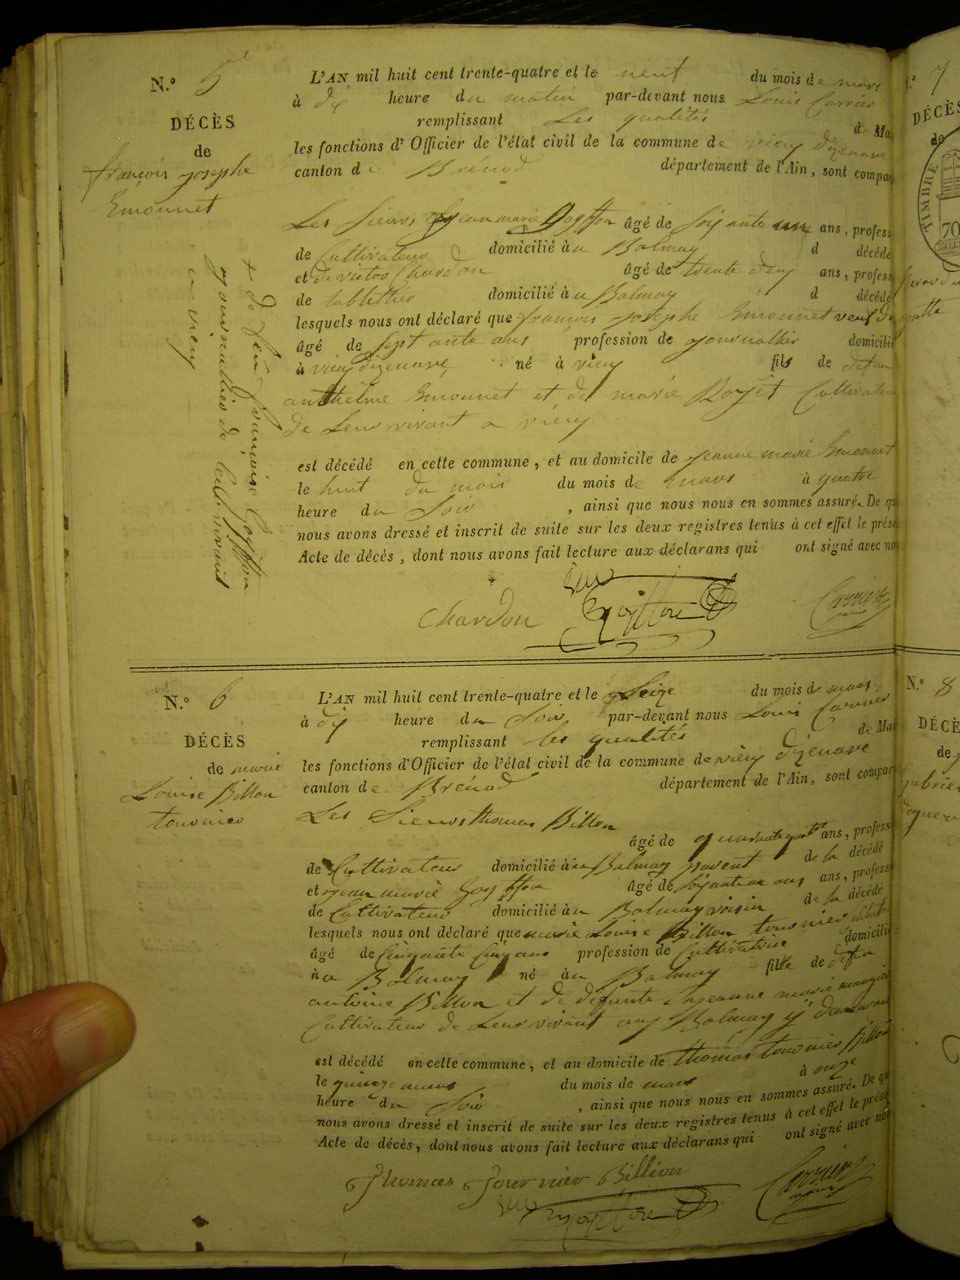 N.° 5
DÉCÈS
de
françois josephe
Emonnet
+ de feu françoise Goyffon
journalier de leur vivant
a vieu
L'AN mil huit cent trente-quatre et le neuf du mois de mars
à dix heure du matin par-devant nous Louis Carrier
remplissant les qualités de Ma
les fonctions d'Officier de l'état civil de la commune de vieu dizenave
canton de Brénod département de l'Ain, sont compa
Les Sieurs Jean marie Goyffon âgé de soixante un ans, profess
de Cultivateur domicilié à Balmay d décédé
et de victor chardon âgé de trente deux ans, profess
de tabletier domicilié à Balmay d décédé
lesquels nous ont déclaré que françois josephe Emonnet veuf de
âgé de sept ante ans profession de journallier domicilié
à vieu dizenave né à vieu fils de defun
anthelme Emonnet et de marie Royet Cultivate
de Leur vivant a vieu
est décédé en cette commune, et au domicile de jeanne marie Emonnet
le huit du mois du mois de mars à quatre
heure du Soir, ainsi que nous nous en sommes assuré. De q
nous avons dressé et inscrit de suite sur les deux registres tenus à cet effet le prése
Acte de décès, dont nous avons fait lecture aux déclarans qui ont signé avec no
chardon Goyffon Carrier
N.° 6
DÉCÈS
de marie
Louise Billon
tournier
L'AN mil huit cent trente-quatre et le Seize du mois de mars
à dix heure du Soir par-devant nous Louis Carrier
remplissant les qualités de Ma
les fonctions d'Officier de l'état civil de la commune de vieu dizenave
canton de Brénod département de l'Ain, sont compar
Les Sieurs thomas Billon
âgé de quarante quatre ans, profess
de Cultivateur domicilié à Balmay parent de la décédé
et jean marie Goyffon âgé de soixante un ans ans, profess
de Cultivateur domicilié à Balmay voisin de la décédé
lesquels nous ont déclaré que marie Louise Billon tournier
âgé de Cinquante Cinq ans profession de Cultivatrice domicilié
à Balmay né à Balmay fille de defun
antoine Billon et de defunte jeanne marie
Cultivateur de Leur vivant au Balmay
est décédé en cette commune, et au domicile de thomas tournier Billon
le quinze du mois de mars à onze
heure du Soir, ainsi que nous nous en sommes assuré. De q
nous avons dressé et inscrit de suite sur les deux registres tenus à cet effet le prése
Acte de décès, dont nous avons fait lecture aux déclarans qui ont signé avec no
Thomas Tournier Billion Carrier
Goyffon
N.° 7
DÉCÈS
de
TIMBRE
70
N.° 8
DÉCÈS
de